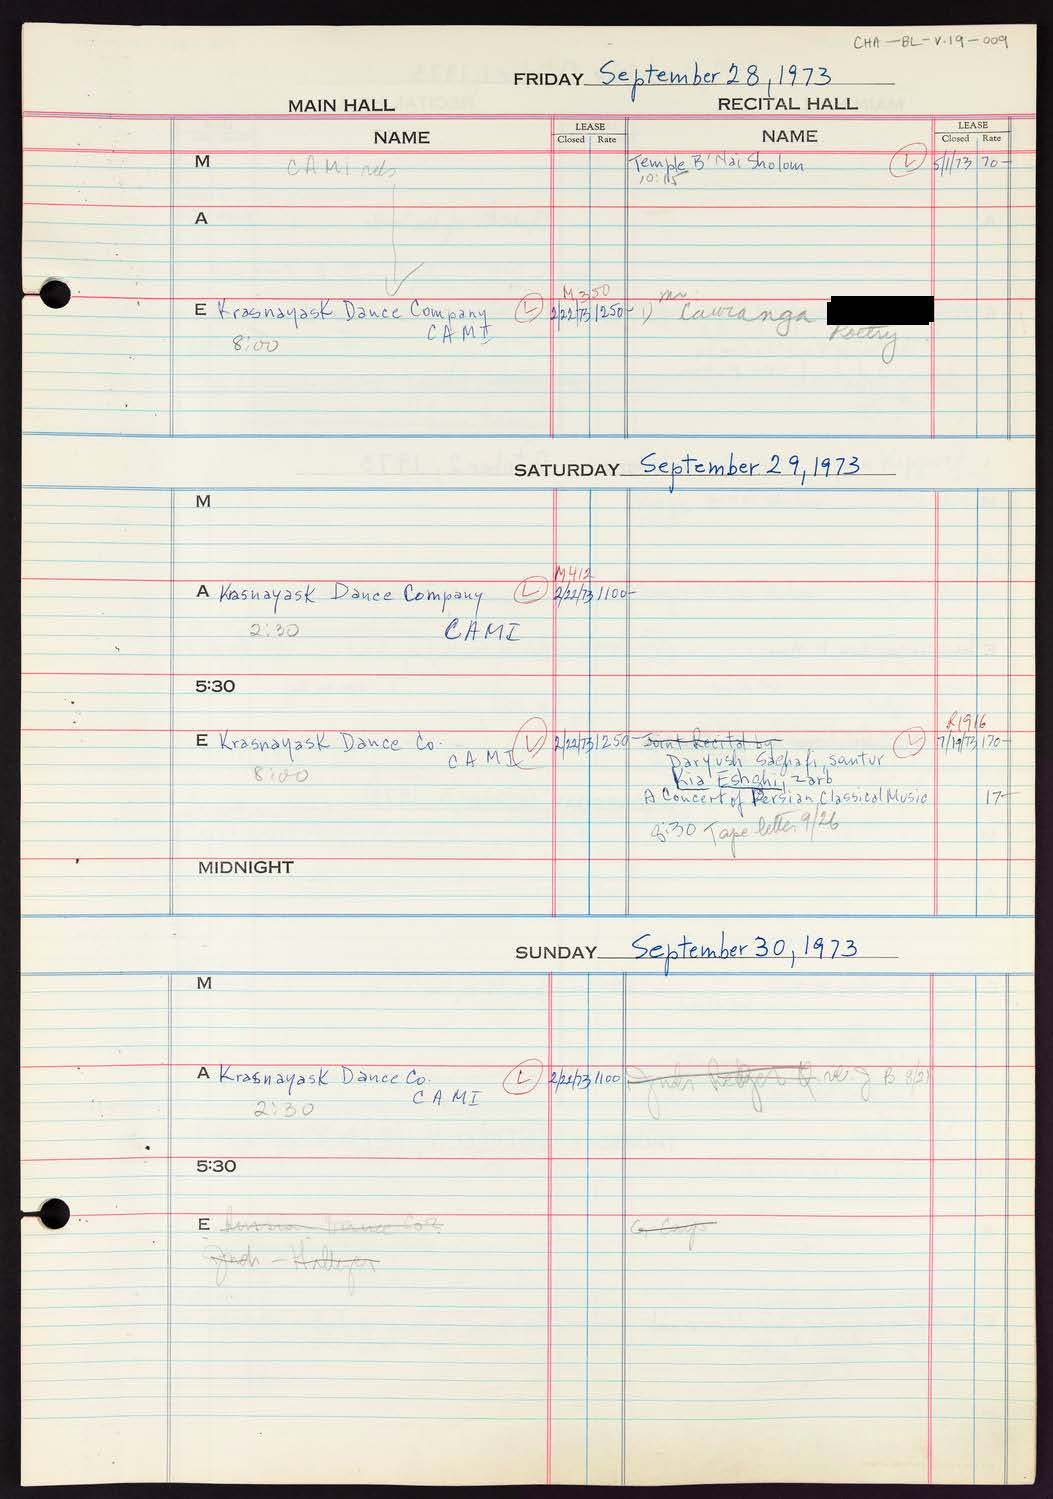 CHA-BL-V.19-009
FRIDAY September 28, 1973
MAIN HALL
RECITAL HALL
NAME
LEASE
Closed Rate
NAME
LEASE
Closed Rate
M CAMI
Temple B'Nai Sholom L 5/1/73 70-
10:15
A
M 350
E Krasnayask Dance Company L 2/22/73 1250-
CAMI
8:00
1) Mr Cauranga
Poetry
SATURDAY September 29, 1973
M
M412
A Kasnayask Dance Company L 2/22/73 1100-
2:30 CAMI
5:30
R1916
E Krasnayask Dance Co. L 2/22/73 1250-
CAMI
8:00
Joint Recital by L 7/19/73 170-
Daryush Saghafi, santur
Kia Eshghi, zarb
A Concert of Persian Classical Music 17-
8:30 Tape letter 9/26
MIDNIGHT
SUNDAY September 30, 1973
M
A Krasnayask Dance Co. L 2/22/73 1100
CAMI
2:30
B
5:30
E Dance Co